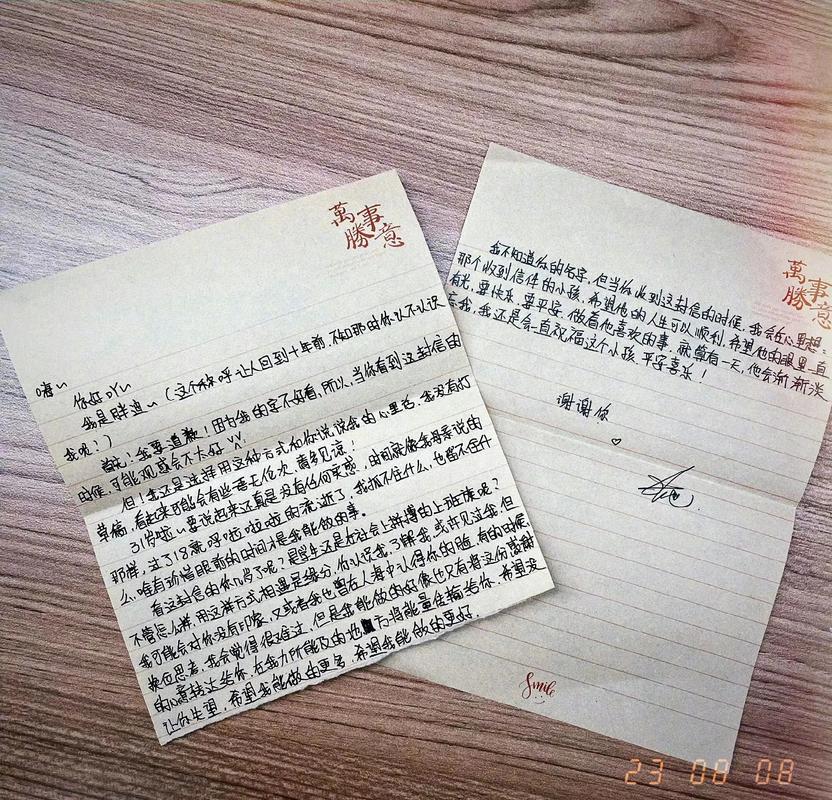 萬事
勝意
嗨~
你好吖~
我是胖迪~（这个称呼让人回到十年前，不知那时你认不认识
我呢？）
首先！我要道歉！因为我的字不好看，所以，当你看到这封信的
时候，可能观感会不大好
但！我还是选择用这种方式和你说说我的心里话，我没有打
草稿，看起来可能会有些语无伦次，请多见谅！
31岁啦~要说起来还真是没有任何实感，时间就像我母亲说的
那样，过了18就呼啦啦啦的流逝了，我抓不住什么，也留不住什
么，唯有珍惜眼前的时间才是我能做的事。
看这封信的你几岁了呢？是学生还是在社会上拼搏的上班族呢？
不管怎么样，用这样方式相遇是缘分，你认识我，了解我，或许见过我，但
我可能会对你没有印象，又或者我也曾在人海中认得你的脸，有的时候
换位思考，我会觉得很难过，但是我能做的好像也只有将这份感谢
的心意转达给你，在我力所能及的地方将能量传输给你，希望没
让你失望，希望我能做的更多，希望我能做的更好。
萬事
勝意
我不知道你的名字，但当你收到这封信的时候，我会在心里想：
那个收到信件的小孩，希望他的人生可以顺利，希望他的眼里一直
有光，要快乐，要平安，做着他喜欢的事，就算有一天，他会渐渐淡
忘我，我还是会一直祝福这个小孩，平安喜乐！
谢谢你
♡
Smile
23 08 08